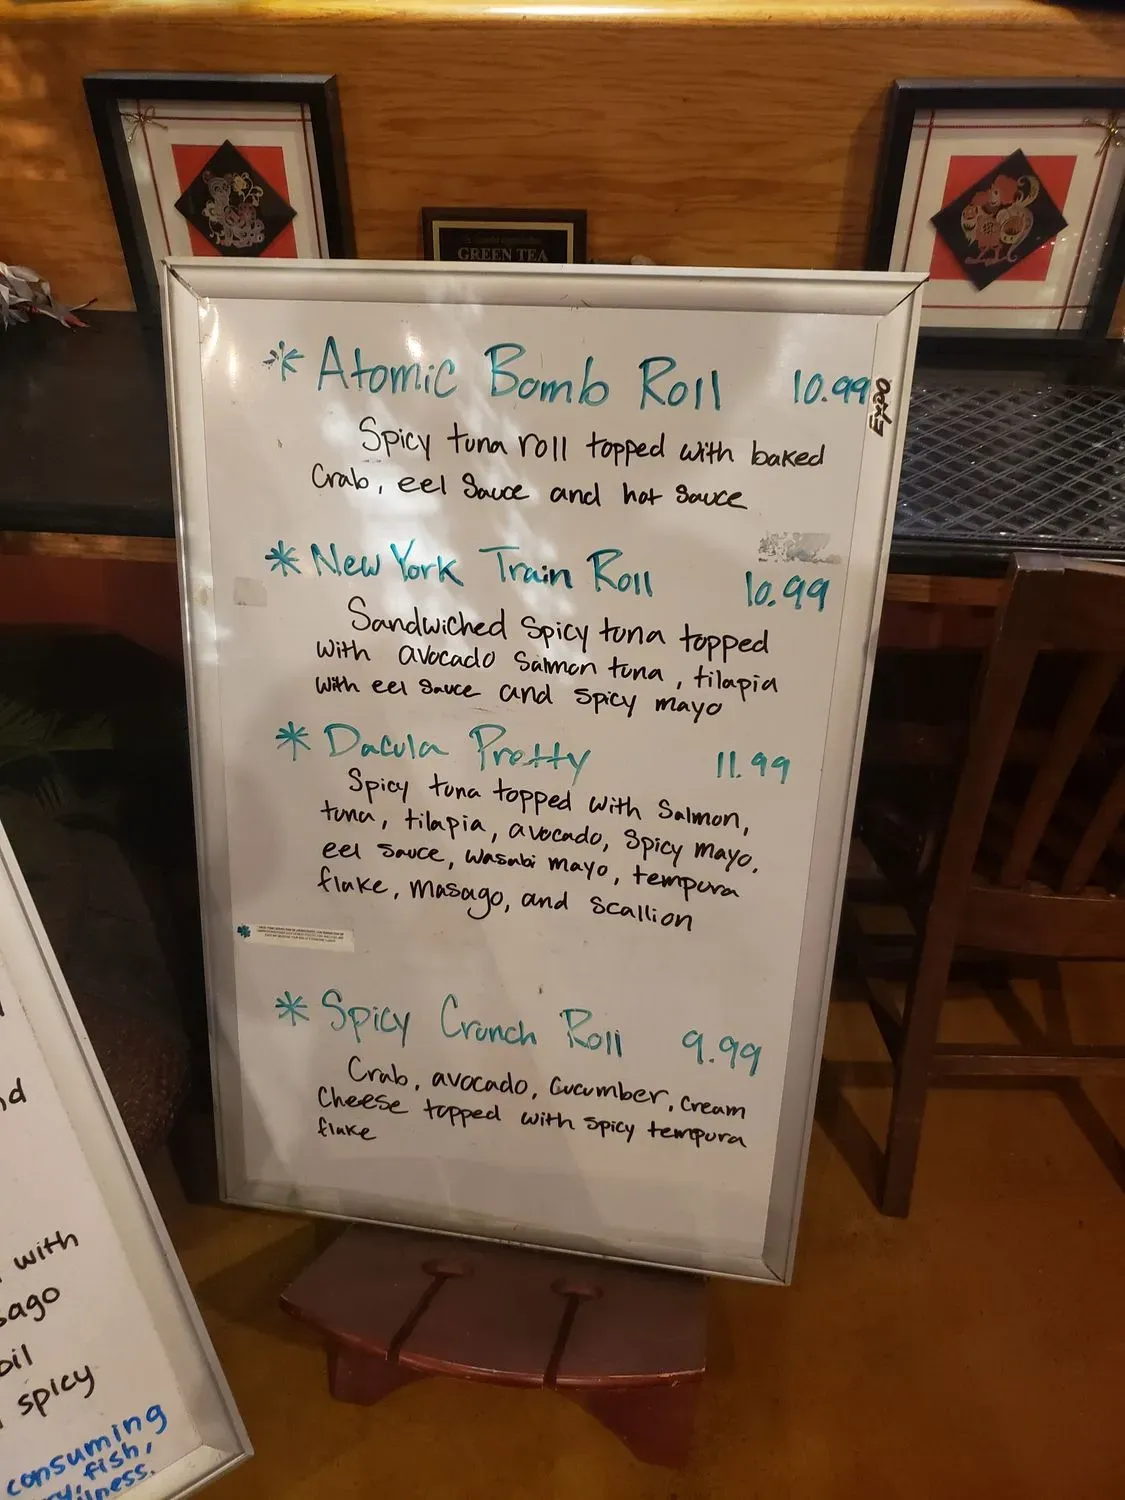 GREEN TEA
* Atomic Bomb Roll 10.99
EXPO
Spicy tuna roll topped with baked
Crab, eel Sauce and hot Sauce
* New York Train Roll 10.99
Sandwiched Spicy tuna topped
with avocado Salmon tuna, tilapia
with eel Sauce and Spicy mayo
* Dacula Pretty 11.99
Spicy tuna topped with Salmon,
tuna, tilapia, avocado, Spicy mayo,
eel Sauce, wasabi mayo, tempura
flake, masago, and Scallion
* Spicy Crunch Roll 9.99
Crab, avocado, Cucumber, Cream
Cheese topped with spicy tempura
flake
with
oil
spicy
consuming
fish,